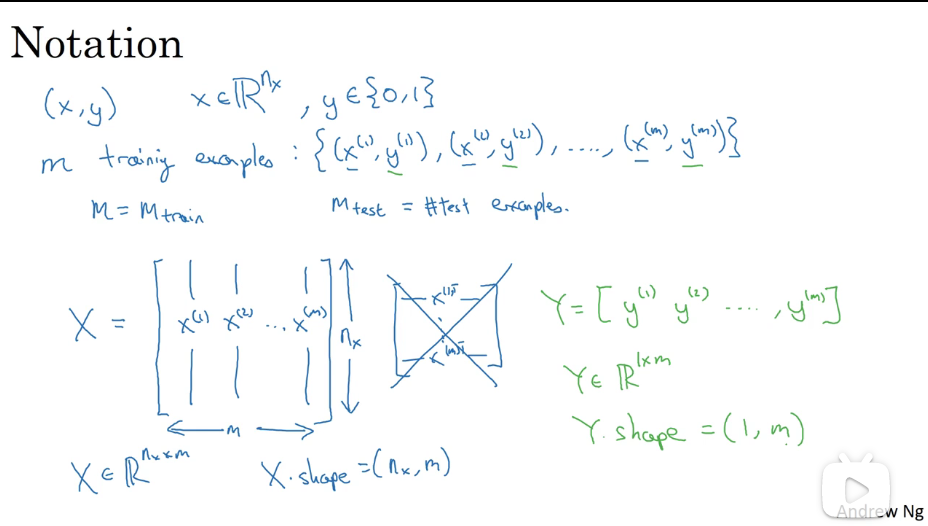 Notation
(x,y) x∈ℝ^{n_x}, y∈{0,1}
m training examples : {(x^{(1)}, y^{(1)}), (x^{(2)}, y^{(2)}), ...., (x^{(m)}, y^{(m)})}
M = M_{train} M_{test} = #test examples.
X = [x^{(1)} x^{(2)} ... x^{(m)}] n_x
m
x^{(1)T}
⋮
x^{(m)T}
Y = [y^{(1)} y^{(2)} ...., y^{(m)}]
Y∈ℝ^{1×m}
Y.shape = (1, m)
X∈ℝ^{n_x×m} X.shape = (n_x, m)
Andrew Ng